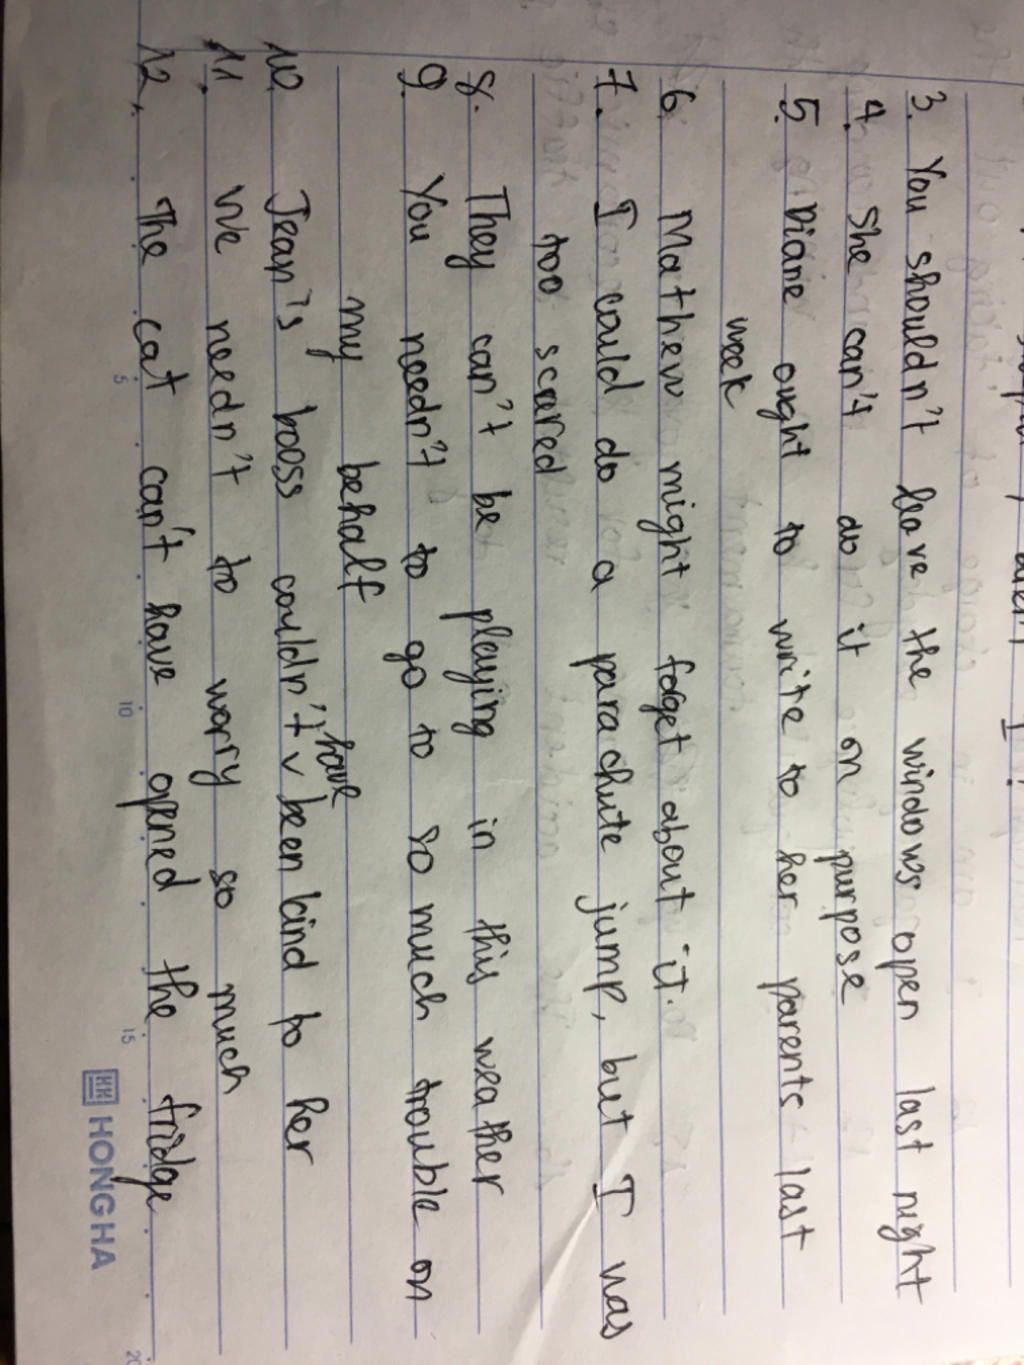 3. You shouldn't leave the windows open last night
4. She can't do it on purpose
5. Diane ought to write to her parents last
week
6. Mathew might foget about it.
7. I could do a parachute jump, but I was
too scared
8. They can't be playing in this weather
9. You needn't to go to so much trouble on
my behalf
have
10. Jean's boss couldn't v been kind to her
11. we needn't to worry so much
12. The cat can't have opened the fridge
5
10
15
20
HONG HA